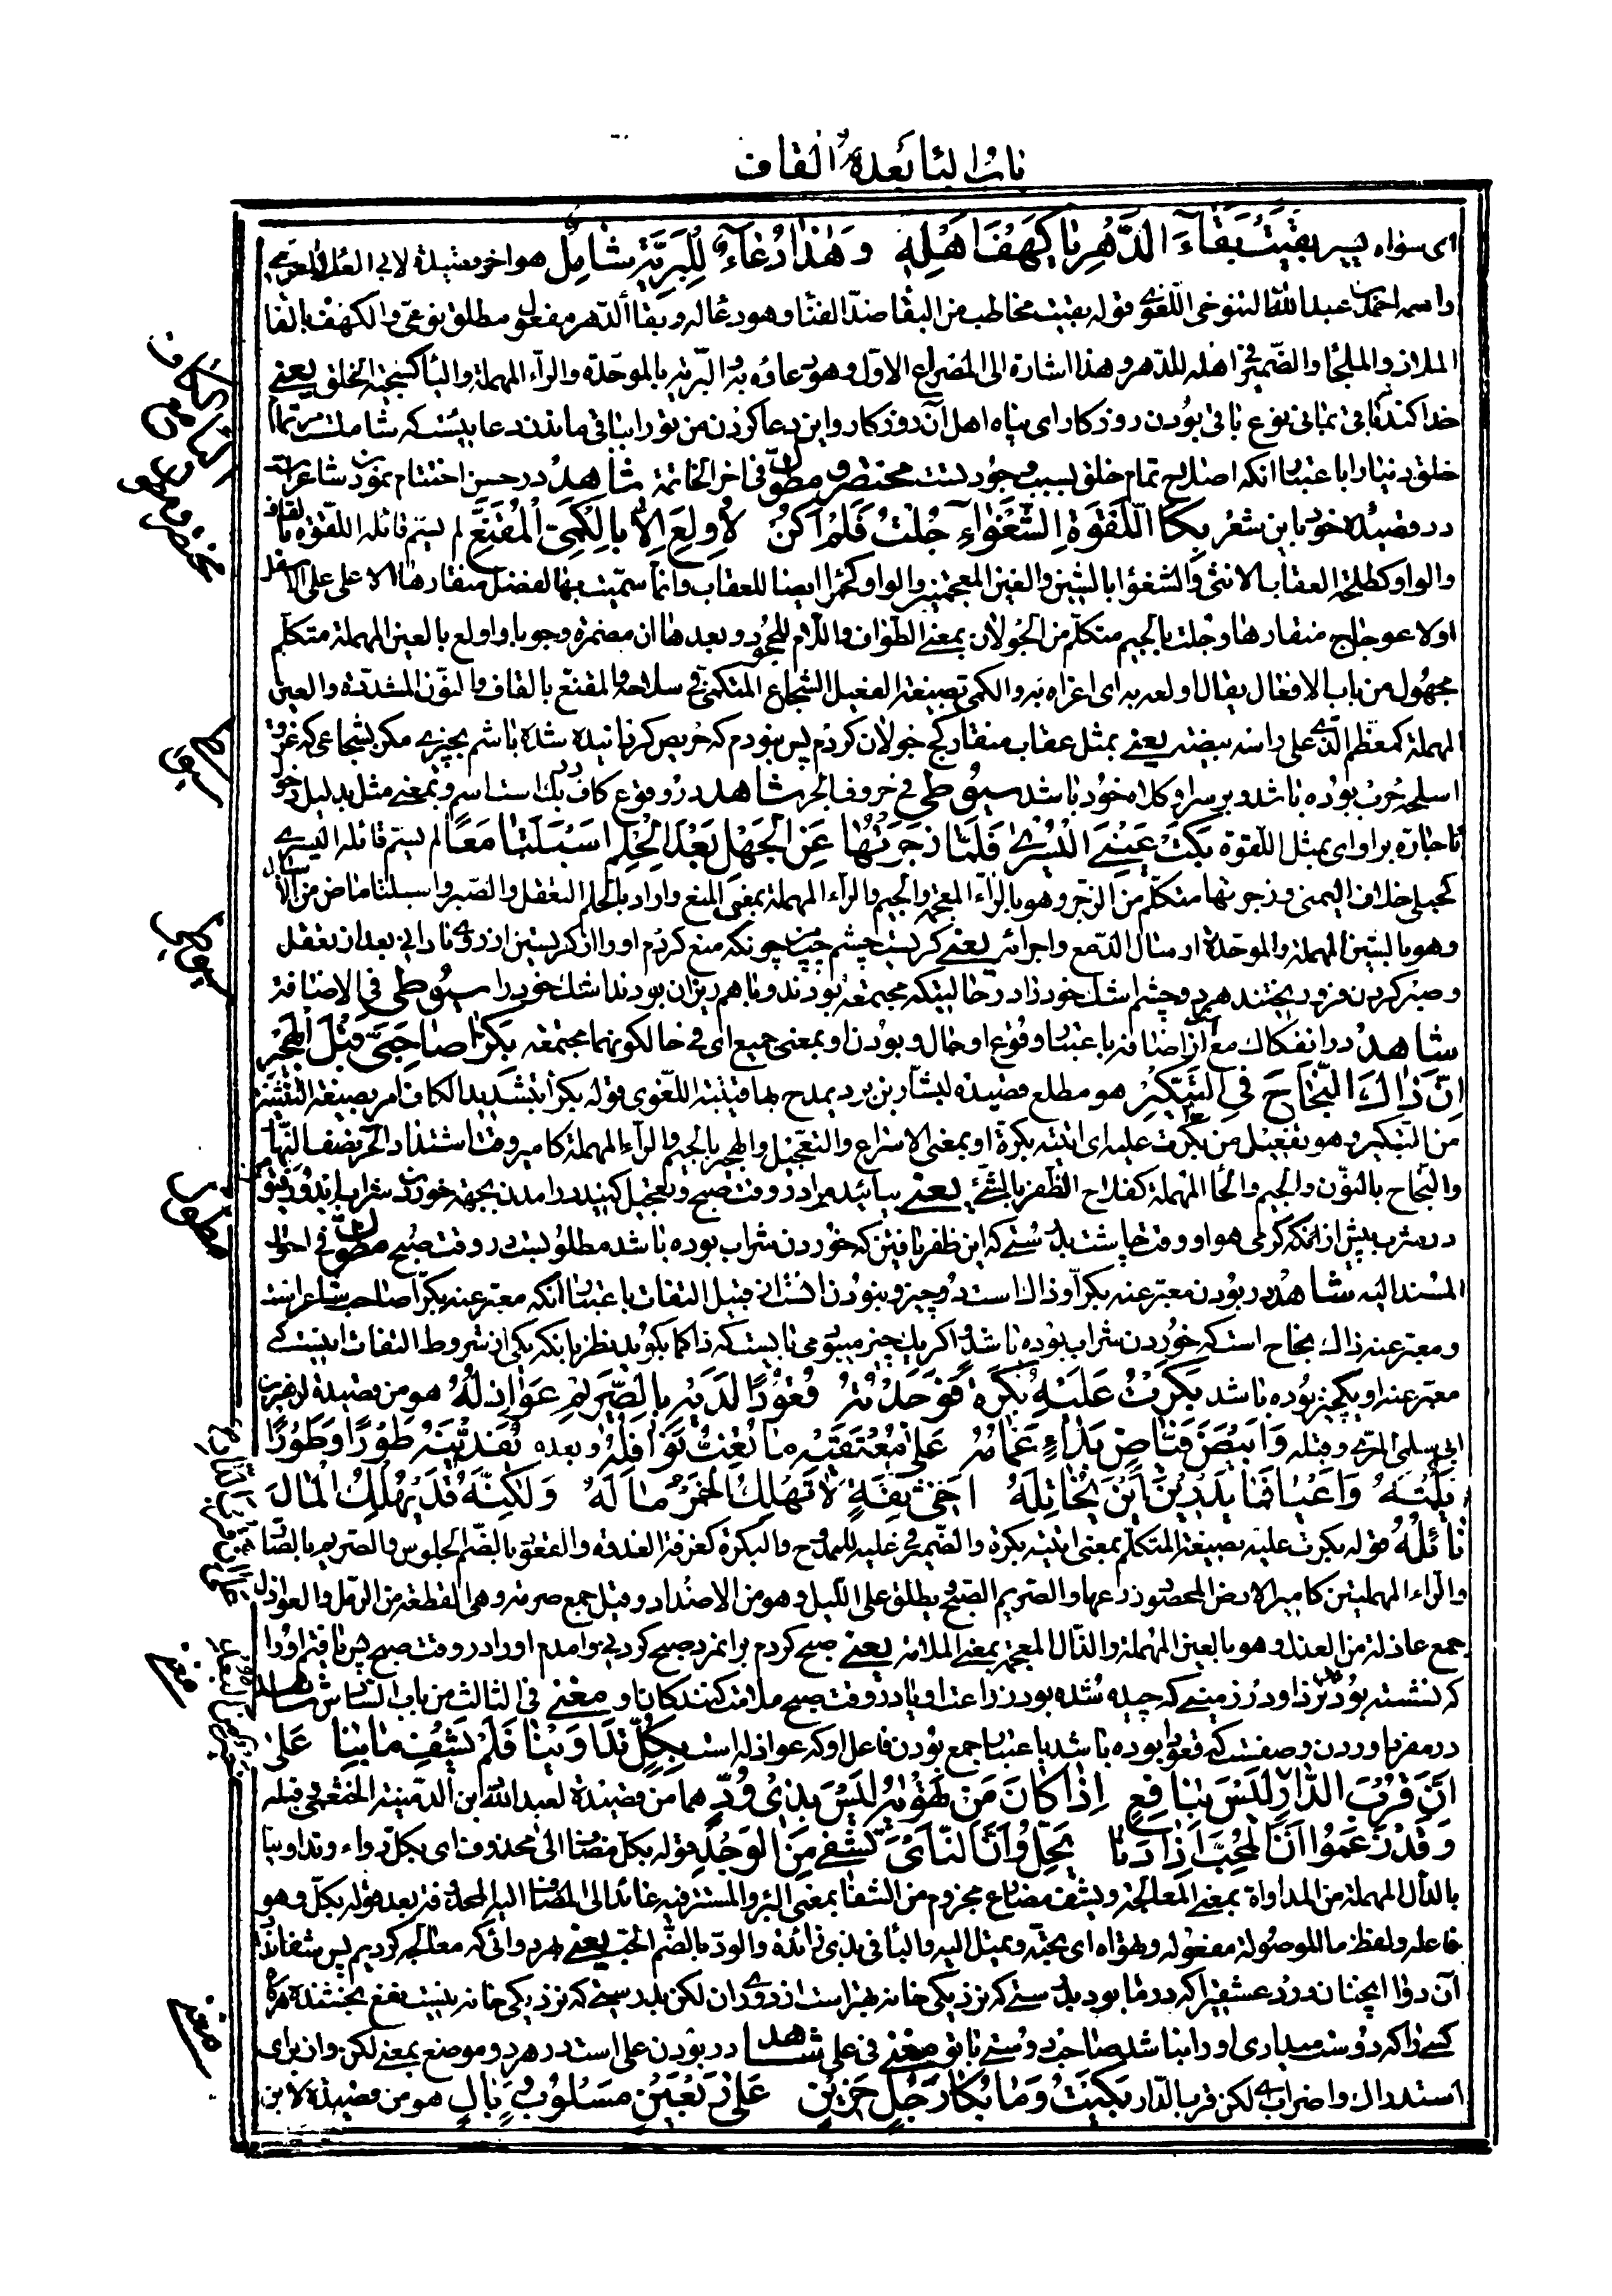 باب البا بعده القاف
ای سواه یسیر بقیت بقاء الدهر یا کهف اهله وهذا دعاء للبریة شامل هو اخر قصیدة لابی العلاء المعری
واسمه احمد بن عبدالله التنوخی اللغوی قوله بقیت مخاطب من البقا ضد الفنا وهو دعا له وبقا الدهر مفعول مطلق نوعی والکهف بالفا
الملاذ والملجا والضمیر فی اهله للدهر وهذا اشارة الی المصراع الاول وهو دعاؤه به والبریه بالموحدة والراء المهملة والیا کسجیة الخلق یعنی
خدا کند باقی بمانی نوع باقی بودن روزکار ای پناه اهل آن روزکار واین دعا کردن من تو را بباقی ماندن دعاییست که شاملست تمام
خلق دنیا را باعتبار انکه اصلاح تمام خلق بسبب وجود تست مختصر و مطول فی اخر الخاتمة شاهد در حسن اختتام نمودن شاعر است
در قصیده خود باین شعر بکا اللقوة الشغواء جلت فلم اکن لاولع الا بالکمی المقنع لم یسم قائله اللقوه بالقاف
والواو کطلحة العقاب الانثی والشغوا بالشین والغین المعجمتین والواو کحمرا ایضا للعقاب وانما سمیت بها لفضل منقارها الاعلی علی الاسفل
اولاعوجاج منقارها وجلت بالجیم متکلم من الجولان بمعنی الطواف واللام للجحود وبعدها ان مضمرة وجوبا واولع بالعین المهملة متکلم
مجهول من باب الافعال یقال اولعه به ای اغراه به والکمی بصیغة الفعیل الشجاع المتکمی فی سلاحه والمقنع بالقاف والنون المشددة والعین
المهملة کمعظم الذی علی راسه بیضه یعنی بمثل عقاب منقار کج جولان کردم پس نبودم که حریص کردانیده شده باشم بچیزی مکر بشجاعی که غرق
اسلحه حرب بوده باشد وبر سر او کلاه خود باشد سیوطی فی حروف الجر شاهد در وقوع کاف در بکا است اسم وبمعنی مثل بدلیل دخول
با جاره بر او ای بمثل اللقوة بکت عینی الیسری فلما زجرتها عن الجهل بعد الحلم اسبلتا معا لم یسم قائله الیسری
کحبلی خلاف الیمنی وزجرتها متکلم من الزجر وهو بالزاء المعجمة والجیم والراء المهملة بمعنی المنع واراد بالحلم التعقل والصبر واسبلتا ماض من الاسبال
وهو بالسین المهملة والموحدة ارسال الدمع واجرائه یعنی کریست چشم چپ من چونکه منع کردم او را از کریستن از روی نادانی بعد از تعقل
وصبر کردن فرو ریختند هر دو چشم اشک خود را در حالتیکه مجتمعه بودند وبا هم ریزان بودند اشک خود را سیوطی فی الاضافة
شاهد در انفکاک مع از اضافه باعتبار وقوع او حال وبودن او بمعنی جمیع ای فی حالکونهما مجتمعه بکرا صاحبی قبل الهجیر
ان ذاک النجاح فی التبکیر هو مطلع قصیده لبشار بن برد یمدح بها قتیبة اللغوی قوله بکرا بتشدید الکاف امر بصیغة التثنیة
من التبکیر وهو تفعیل من بکرت علیه ای اتیته بکرة او بمعنی الاسراع والتعجیل والهجیر بالجیم والراء المهملة کامیر وقت اشتداد الحر نصف النهار
والنجاح بالنون والجیم والحا المهملة کفلاح الظفر بالشئ یعنی بیائید مرا در وقت صبح وتعجیل کنید در امدن بجهة خوردن شراب ای دو رفیق من
در شرب پیش از انکه کرمی هوا و وقت چاشت بدرستی که این ظفر یافتن که خوردن شراب بوده باشد مطلوبست در وقت صبح مطول فی احوال
المسند الیه شاهد در بودن معبر عنه بکرا وذاک است دو چیز ونبودن انست از قبیل التفات باعتبار انکه معبر عنه بکرا صاحب شاعر است
ومعبر عنه ذاک نجاح است که خوردن شراب بوده باشد واکر یک چیز میبود می بایست که ذاکما بکوید نظر بانکه یکی از شروط التفات اینست که
معبر عنه او یکچیز بوده باشد بکرت علیه بکرة فوجدته قعودا لدیه بالصریم عواذله هو من قصیدة لزهیر بن
ابی سلمی المزنی وقبله وابیض فیاض یداه غمامة علی معتفیه ما تغب نوافله وبعده یفدینه طورا وطورا
یلمنه واعیا فما یدرین این مخاتله اخی ثقة لا تهلک الخمر ماله ولکنه قد یهلک المال
نائله قوله بکرت علیه بصیغة المتکلم بمعنی اتیته بکرة والضمیر فی علیه للممدوح والبکرة کغرفة الغدوة والقعود بالضم الجلوس والصریم بالصاد
والراء المهملتین کامیر الارض المحصود زرعها والصریم الصبح ویطلق علی اللیل وهو من الاضداد وقیل جمع صریمه وهی القطعة من الرمل والعواذل
جمع عاذلة من العذل وهو بالعین المهملة والذال المعجمة بمعنی الملامة یعنی صبح کردم بر انمرد صبح کردنی وامدم او را در وقت صبح پس یافتم او را
که نشسته بودند نزد او در زمینی که چیده شده بود زراعت او یا در وقت صبح ملامت کنندکان او مغنی فی الثالث من باب الثانی شاهد
در مفرد اوردن وصفست که قعودا بوده باشد باعتبار جمع بودن فاعل او که عواذله است بکل تداوینا فلم یشف ما بنا علی
ان قرب الدار لیس بنافع اذا کان من تهواه لیس بذی ود هما من قصیدة لعبدالله ابن الدمینة الخثعمی قبله
وقد زعموا ان المحب اذا دنا یمل وان النای یشفی من الوجد قوله بکل مضاف الی محذوف ای بکل دواء وتداوینا
بالدال المهملة من المداواة بمعنی المعالجة ویشف مضارع مجزوم من الشفا بمعنی البرء والمستتر فیه عائد الی المضاف الیه المحذوفة بعد قوله بکل وهو
فاعله ولفظ ما الموصولة مفعوله وتهواه ای تحبه وتمیل الیه والبا فی بذی زائدة والود بالضم الحب یعنی بهر دوائی که معالجه کردیم پس شفا نداد
آن دوا انچنان درد عشقیرا که در ما بود بدرستی که نزدیکی خانه بهتر است از دوری ان لکن بدرستی که نزدیکی خانه نیست نفع بخشنده هرکاه
کسی را که دوست میداری او را نباشد صاحب دوستی با تو مغنی فی علی شاهد در بودن علی است در هر دو موضع بمعنی لکن وان برای
استدراک واضراب ای لکن قرب الدار بکیت وما بکا رجل حزین علی ربعین مسلوب وبال هو من قصیدة لابن